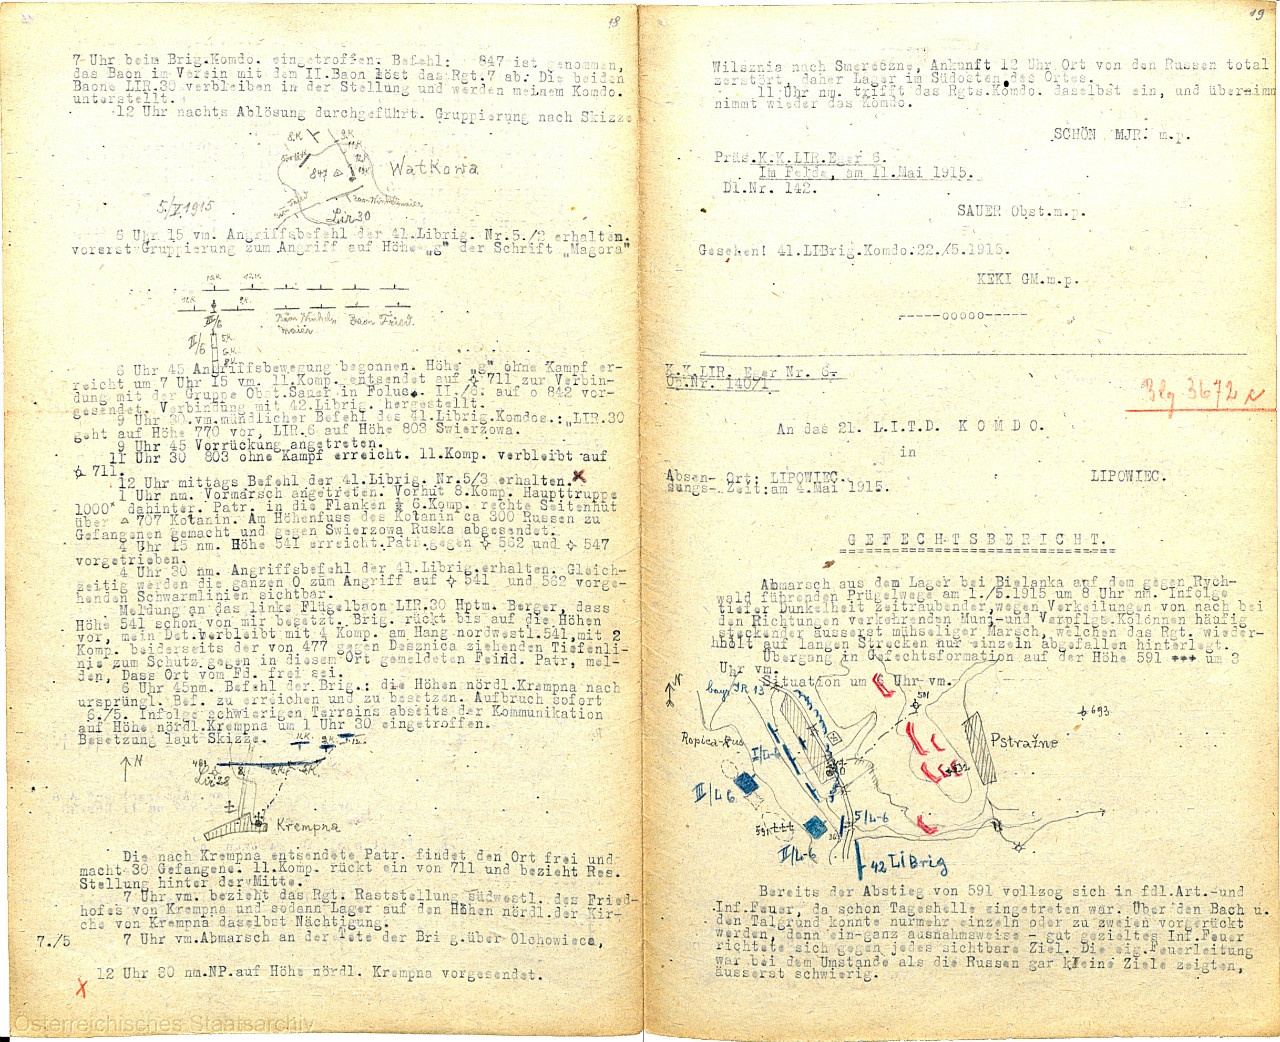 18
7 Uhr beim Brig.Komdo. eingetroffen. Befehl: 847 ist genommen,
das Baon im Verein mit dem II.Baon löst das Rgt.7 ab. Die beiden
Baone LIR.30 verbleiben in der Stellung und werden meinem Komdo.
unterstellt.
12 Uhr nachts Ablösung durchgeführt. Gruppierung nach Skizze
8.K.
9.K.
11.K.
12.K.
847
Watkowa
Lir 30
5./V.1915
6 Uhr 15 vm. Angriffsbefehl der 41.Librig. Nr.5./2 erhalten.
vorerst Gruppierung zum Angriff auf Höhe „g" der Schrift „Magora"
10.K. 12.K.
11.K. 9.K.
III/6
Baon Winkelmaier Baon Fried.
II/6
5K.
6.K.
8.K.
6 Uhr 45 Angriffsbewegung begonnen. Höhe „g" ohne Kampf er-
reicht um 7 Uhr 15 vm. 11.Komp. entsendet auf 711 zur Verbin-
dung mit der Gruppe Obst.Sauer in Folus. II./6. auf o 842 vor-
gesendet. Verbindung mit 42.Librig. hergestellt.
9 Uhr 30 vm.mündlicher Befehl des 41.Librig.Komdos.:„LIR.30
geht auf Höhe 770 vor, LIR.6 auf Höhe 803 Swierzowa.
9 Uhr 45 Vorrückung angetreten.
11 Uhr 30 803 ohne Kampf erreicht. 11.Komp. verbleibt auf
711.
12 Uhr mittags Befehl der 41.Librig. Nr.5/3 erhalten.
1 Uhr nm. Vormarsch angetreten. Vorhut 8.Komp. Haupttruppe
1000x dahinter. Patr. in die Flanken ½ 6.Komp. rechte Seitenhut
über 707 Kotanin. Am Höhenfuss des Kotanin ca 300 Russen zu
Gefangenen gemacht und gegen Swierzowa Ruska abgesendet.
4 Uhr 15 nm. Höhe 541 erreicht.Patr.gegen 562 und 547
vorgetrieben.
4 Uhr 30 nm. Angriffsbefehl der 41.Librig.erhalten. Gleich-
zeitig werden die ganzen O zum Angriff auf 541 und 562 vorge-
henden Schwarmlinien sichtbar.
Meldung an das linke Flügelbaon LIR.30 Hptm. Berger, dass
Höhe 541 schon von mir besetzt. Brig. rückt bis auf die Höhen
vor, mein Det.verbleibt mit 4 Komp. am Hang nordwestl.541,mit 2
Komp. beiderseits der von 477 gegen Desznica ziehenden Tiefenli-
nie zum Schutz gegen in diesem Ort gemeldeten Feind. Patr. mel-
den, Dass Ort vom Fd. frei sei.
6 Uhr 45nm. Befehl der Brig.: die Höhen nördl.Krempna nach
ursprüngl. Bef. zu erreichen und zu besetzen. Aufbruch sofort
6./5. Infolge schwierigen Terrains abseits der Kommunikation
auf Höhe nördl.Krempna um 1 Uhr 30 eingetroffen.
Besetzung laut Skizze.
N
11.K.
9.K.
Lir 28
8.
6.K.
5.K.
Krempna
Die nach Krempna entsendete Patr. findet den Ort frei und
macht 30 Gefangene. 11.Komp. rückt ein von 711 und bezieht Res.
Stellung hinter der Mitte.
7 Uhr vm. bezieht das Rgt. Raststellung südwestl. des Fried-
hofes von Krempna und sodann Lager auf den Höhen nördl.der Kir-
che von Krempna daselbst Nächtigung.
7./5 7 Uhr vm.Abmarsch an der Tete der Bri g.über Olchowieca,
12 Uhr 30 nm.NP.auf Höhe nördl. Krempna vorgesendet.
Österreichisches Staatsarchiv
19
Wilsznia nach Smereczne, Ankunft 12 Uhr Ort von den Russen total
zerstört, daher Lager im Südosten des Ortes.
11 Uhr nm. trifft das Rgts.Komdo. daselbst ein, und übernimm
nimmt wieder das Komdo.
SCHÖN MJR. m.p.
Präs.K.K.LIR.Eger 6.
Im Felde, am 11.Mai 1915.
Di.Nr. 142.
SAUER Obst.m.p.
Gesehen! 41.LIBrig.Komdo.22./5.1915.
KEKI GM.m.p.
-----ooooo-----
K.K.LIR. Eger Nr. 6.
Op.Nr. 140/1
Blg 3672
An das 21. L.I.T.D. K O M D O.
in
Absen- Ort: LIPOWIEC. LIPOWIEC.
dungs- Zeit:am 4.Mai 1915.
G E F E C H T S B E R I C H T.
Abmarsch aus dem Lager bei Bielanka auf dem gegen Rych-
wald führenden Prügelwege am 1./5.1915 um 8 Uhr nm. Infolge
tiefer Dunkelheit zeitraubender,wegen Verkeilungen von nach bei
den Richtungen verkehrenden Muni-und Verpflgs.Kolonnen häufig
steckender äusserst mühseliger Marsch, welchen das Rgt. wieder-
hhollt auf langen Strecken nur einzeln abgefallen hinterlegt.
Übergang in Gefechtsformation auf der Höhe 591 um 3
Uhr vm.
Situation um 6 Uhr vm.
N
bayr JR 13
501
693
Ropica-Rus
Pstražne
I/L-6
III/L6
5/L-6
591
II/L-6
42 LIBrig
Bereits der Abstieg von 591 vollzog sich in fdl.Art.-und
Inf.Feuer, da schon Tageshelle eingetreten war. Über den Bach u.
den Talgrund konnte nurmehr einzeln oder zu zweien vorgerückt
werden, denn ein-ganz ausnahmsweise - gut gezieltes Inf.Feuer
richtete sich gegen jedes sichtbare Ziel. Die eig.Feuerleitung
war bei dem Umstande als die Russen gar kleine Ziele zeigten,
äusserst schwierig.